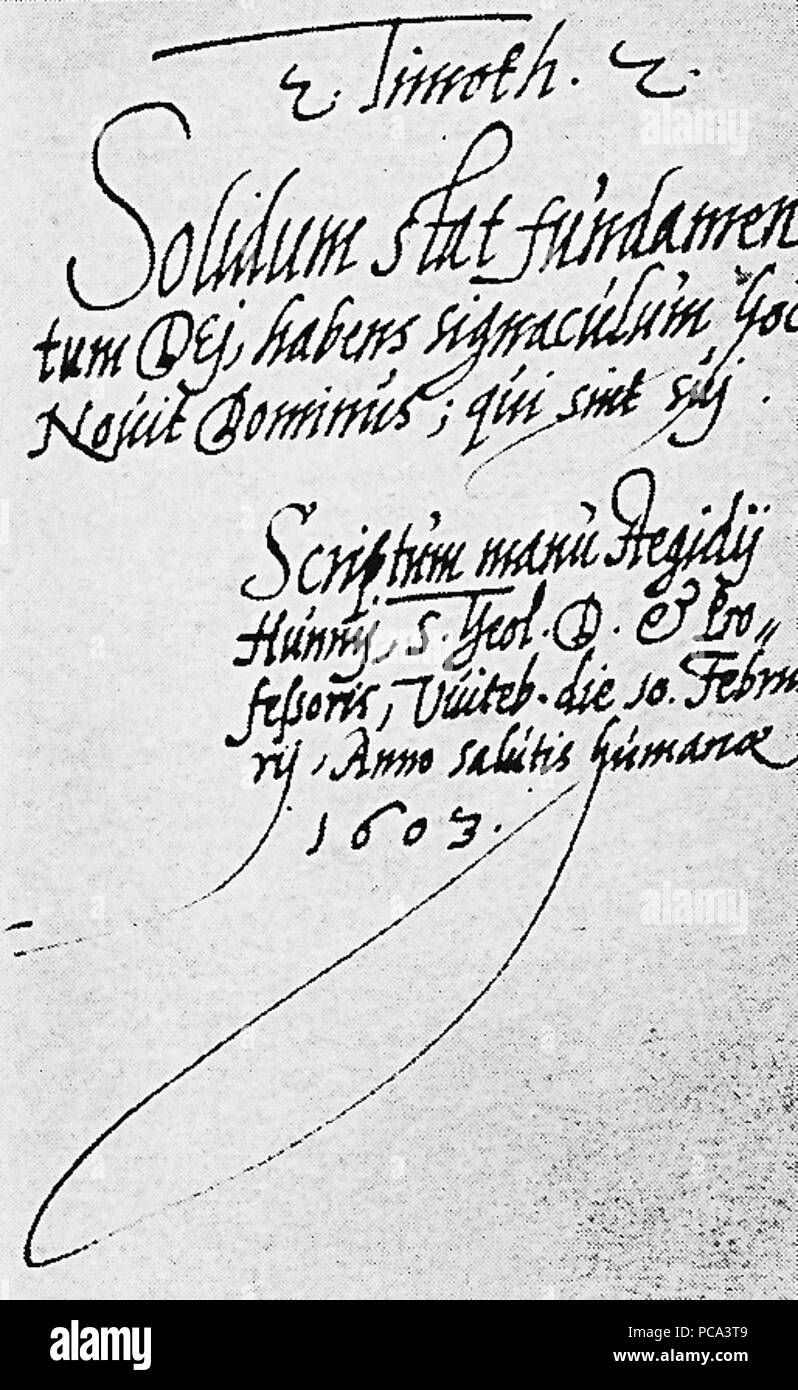 2. Timoth. 2.
Solidum stat fundamen
tum DEj, habens signaculum hoc
Novit Dominus; qui sint sùj.
Scriptùm manù Aegidij
Hunnij, S. Theol. D. & Pro„
feſsoris, Vviteb. die 10. Februa
rij, Anno salutis humanæ
1603.
alamy
Image ID: PCA3T9
www.alamy.com